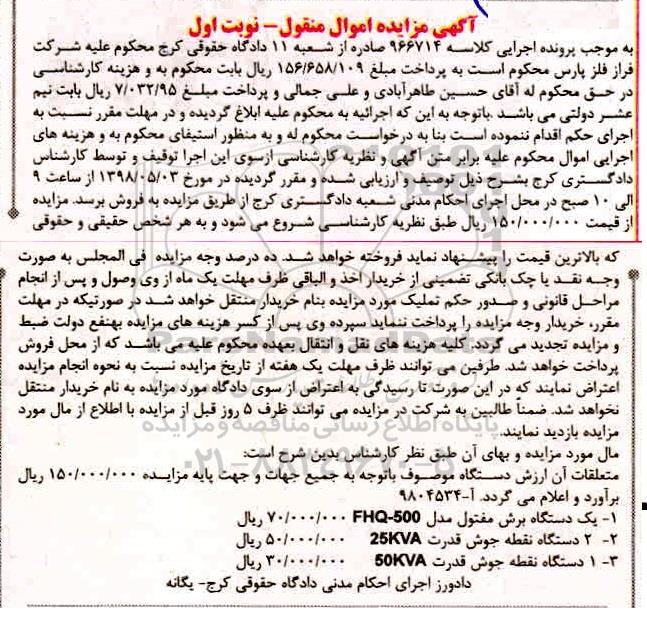 آگهی مزایده اموال منقول – نوبت اول
به موجب پرونده اجرایی کلاسه ۹۶۶۷۱۴ صادره از شعبه ۱۱ دادگاه حقوقی کرج محکوم علیه شرکت
فراز فلز پارس محکوم است به پرداخت مبلغ ۱۵۶/۶۵۸/۱۰۹ ریال بابت محکوم به و هزینه کارشناسی
در حق محکوم له آقای حسین طاهرآبادی و علی جمالی و پرداخت مبلغ ۷/۰۳۲/۹۵ ریال بابت نیم
عشر دولتی می باشد .باتوجه به این که اجرائیه به محکوم علیه ابلاغ گردیده و در مهلت مقرر نسبت به
اجرای حکم اقدام ننموده است بنا به درخواست محکوم له و به منظور استیفای محکوم به و هزینه های
اجرایی اموال محکوم علیه برابر متن آگهی و نظریه کارشناسی ازسوی این اجرا توقیف و توسط کارشناس
دادگستری کرج بشرح ذیل توصیف و ارزیابی شده و مقرر گردیده در مورخ ۱۳۹۸/۰۵/۰۳ از ساعت ۹
الی ۱۰ صبح در محل اجرای احکام مدنی شعبه دادگستری کرج از طریق مزایده به فروش برسد. مزایده
از قیمت ۱۵۰/۰۰۰/۰۰۰ ریال طبق نظریه کارشناسی شروع می شود و به هر شخص حقیقی و حقوقی
که بالاترین قیمت را پیشنهاد نماید فروخته خواهد شد. ده درصد وجه مزایده فی المجلس به صورت
وجه نقد یا چک بانکی تضمینی از خریدار اخذ و الباقی ظرف مهلت یک ماه از وی وصول و پس از انجام
مراحل قانونی و صدور حکم تملیک مورد مزایده بنام خریدار منتقل خواهد شد در صورتیکه در مهلت
مقرر، خریدار وجه مزایده را پرداخت ننماید سپرده وی پس از کسر هزینه های مزایده بهنفع دولت ضبط
و مزایده تجدید می گردد. کلیه هزینه های نقل و انتقال بعهده محکوم علیه می باشد که از محل فروش
پرداخت خواهد شد. طرفین می توانند ظرف مهلت یک هفته از تاریخ مزایده نسبت به نحوه انجام مزایده
اعتراض نمایند که در این صورت تا رسیدگی به اعتراض از سوی دادگاه مورد مزایده به نام خریدار منتقل
نخواهد شد. ضمناً طالبین به شرکت در مزایده می توانند ظرف ۵ روز قبل از مزایده با اطلاع از مال مورد
مزایده بازدید نمایند.
مال مورد مزایده و بهای آن طبق نظر کارشناس بدین شرح است:
متعلقات آن ارزش دستگاه موصوف باتوجه به جمیع جهات و جهت پایه مزایده ۱۵۰/۰۰۰/۰۰۰ ریال
برآورد و اعلام می گردد. آ-۹۸۰۴۵۳۴
۱- یک دستگاه برش مفتول مدل FHQ-500 ۷۰/۰۰۰/۰۰۰ ریال
۲- ۲ دستگاه نقطه جوش قدرت 25KVA ۵۰/۰۰۰/۰۰۰ ریال
۳- ۱ دستگاه نقطه جوش قدرت 50KVA ۳۰/۰۰۰/۰۰۰ ریال
دادورز اجرای احکام مدنی دادگاه حقوقی کرج- یگانه
پایگاه اطلاع رسانی مناقصه و مزایده
۰۲۱-۸۸۳۴۹۶۷۰-۵